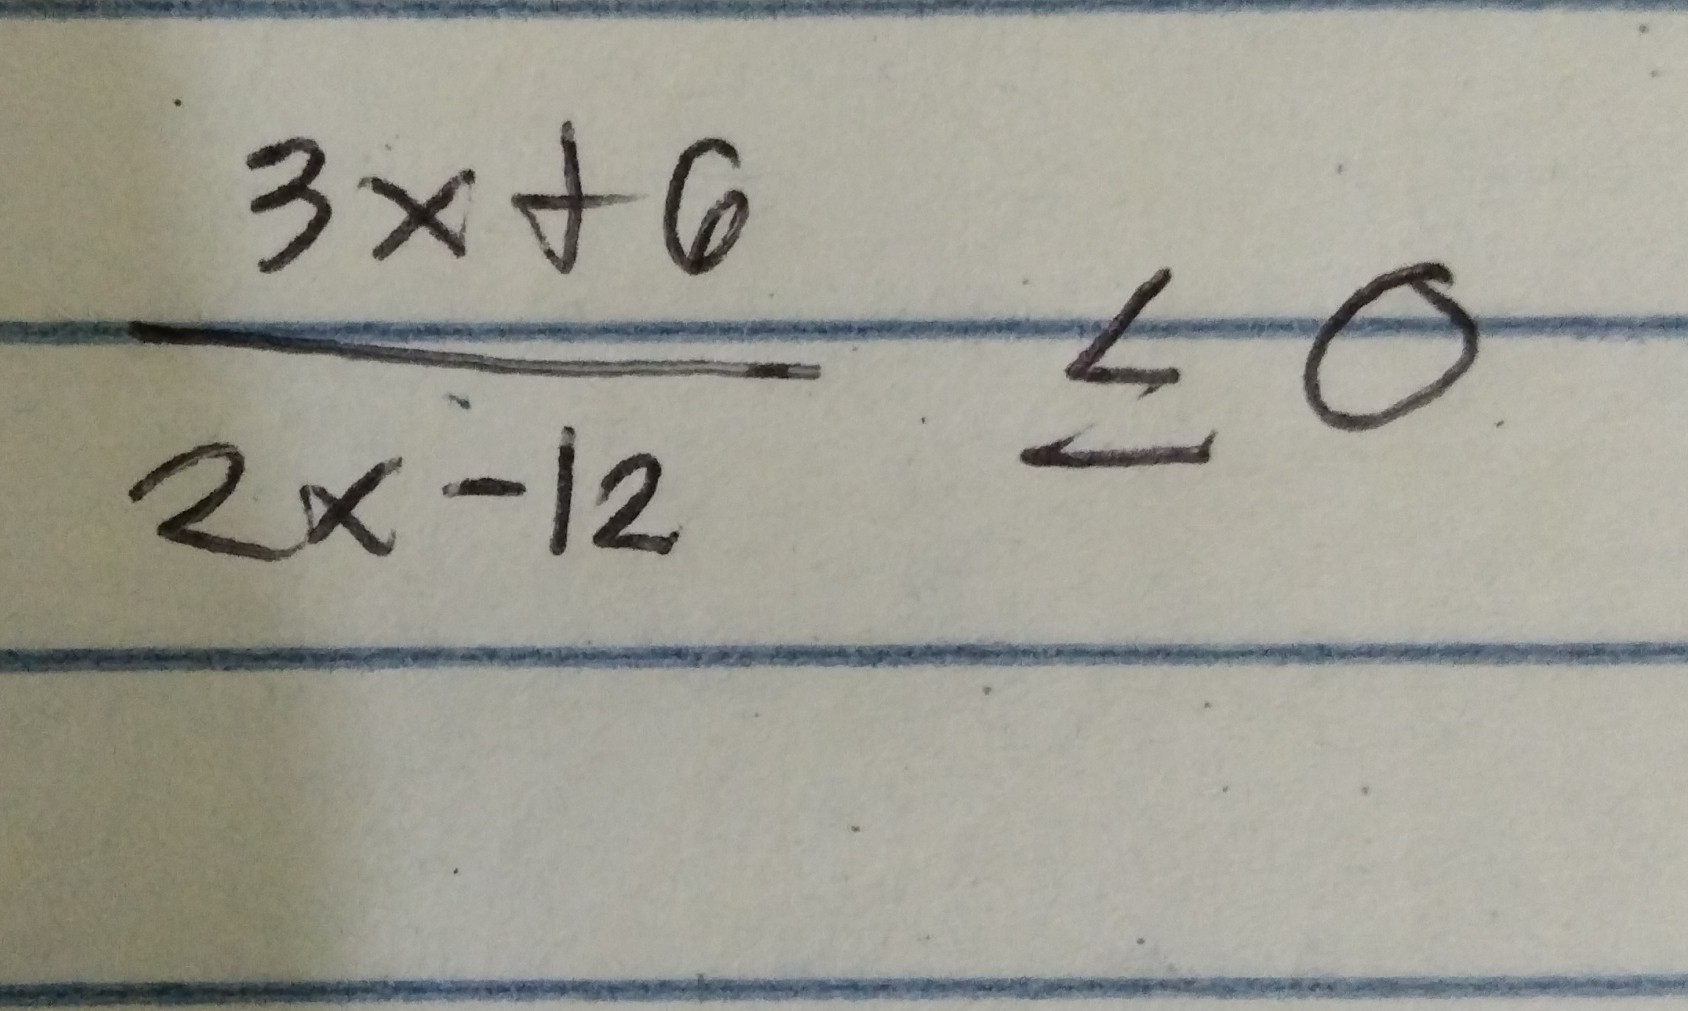 3x+6
2x-12
≤ 0